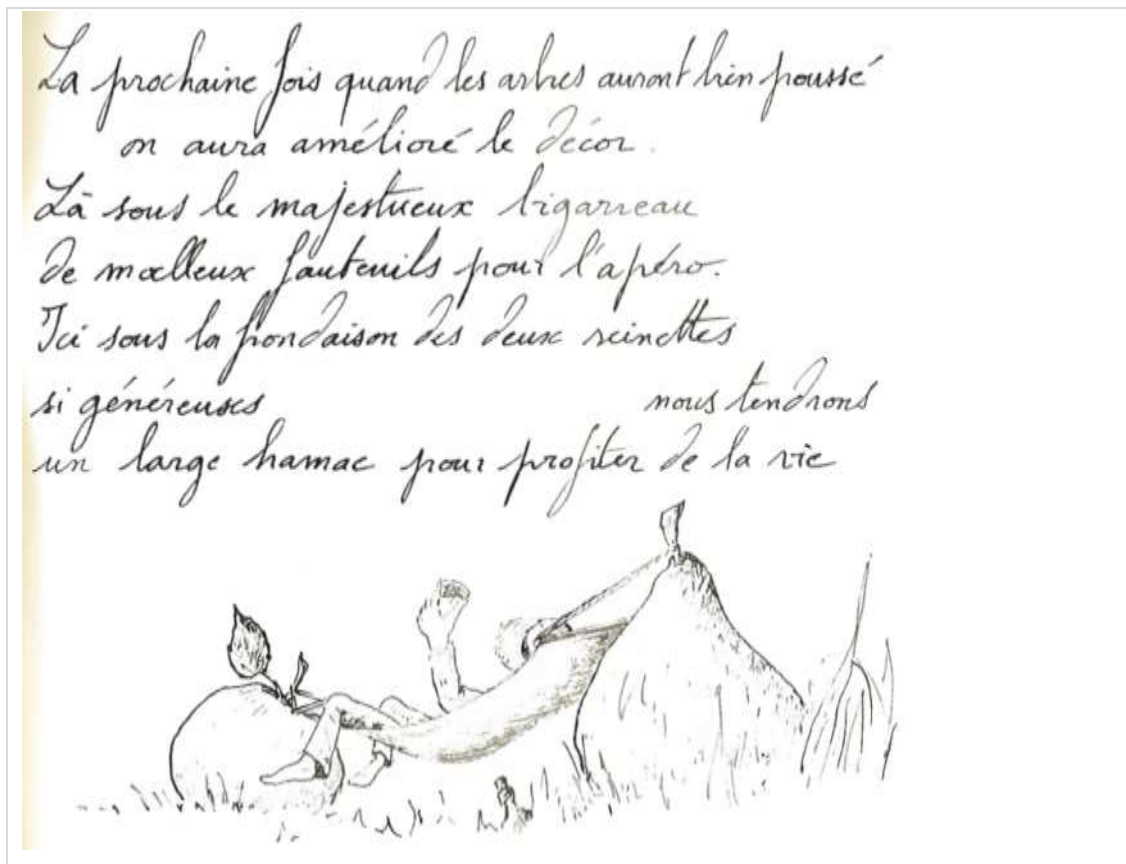 La prochaine fois quand les arbres auront bien poussé
on aura amélioré le décor.
Là sous le majestueux bigarreau
de moelleux fauteuils pour l'apéro.
Ici sous la frondaison des deux reinettes
si généreuses nous tendrons
un large hamac pour profiter de la vie